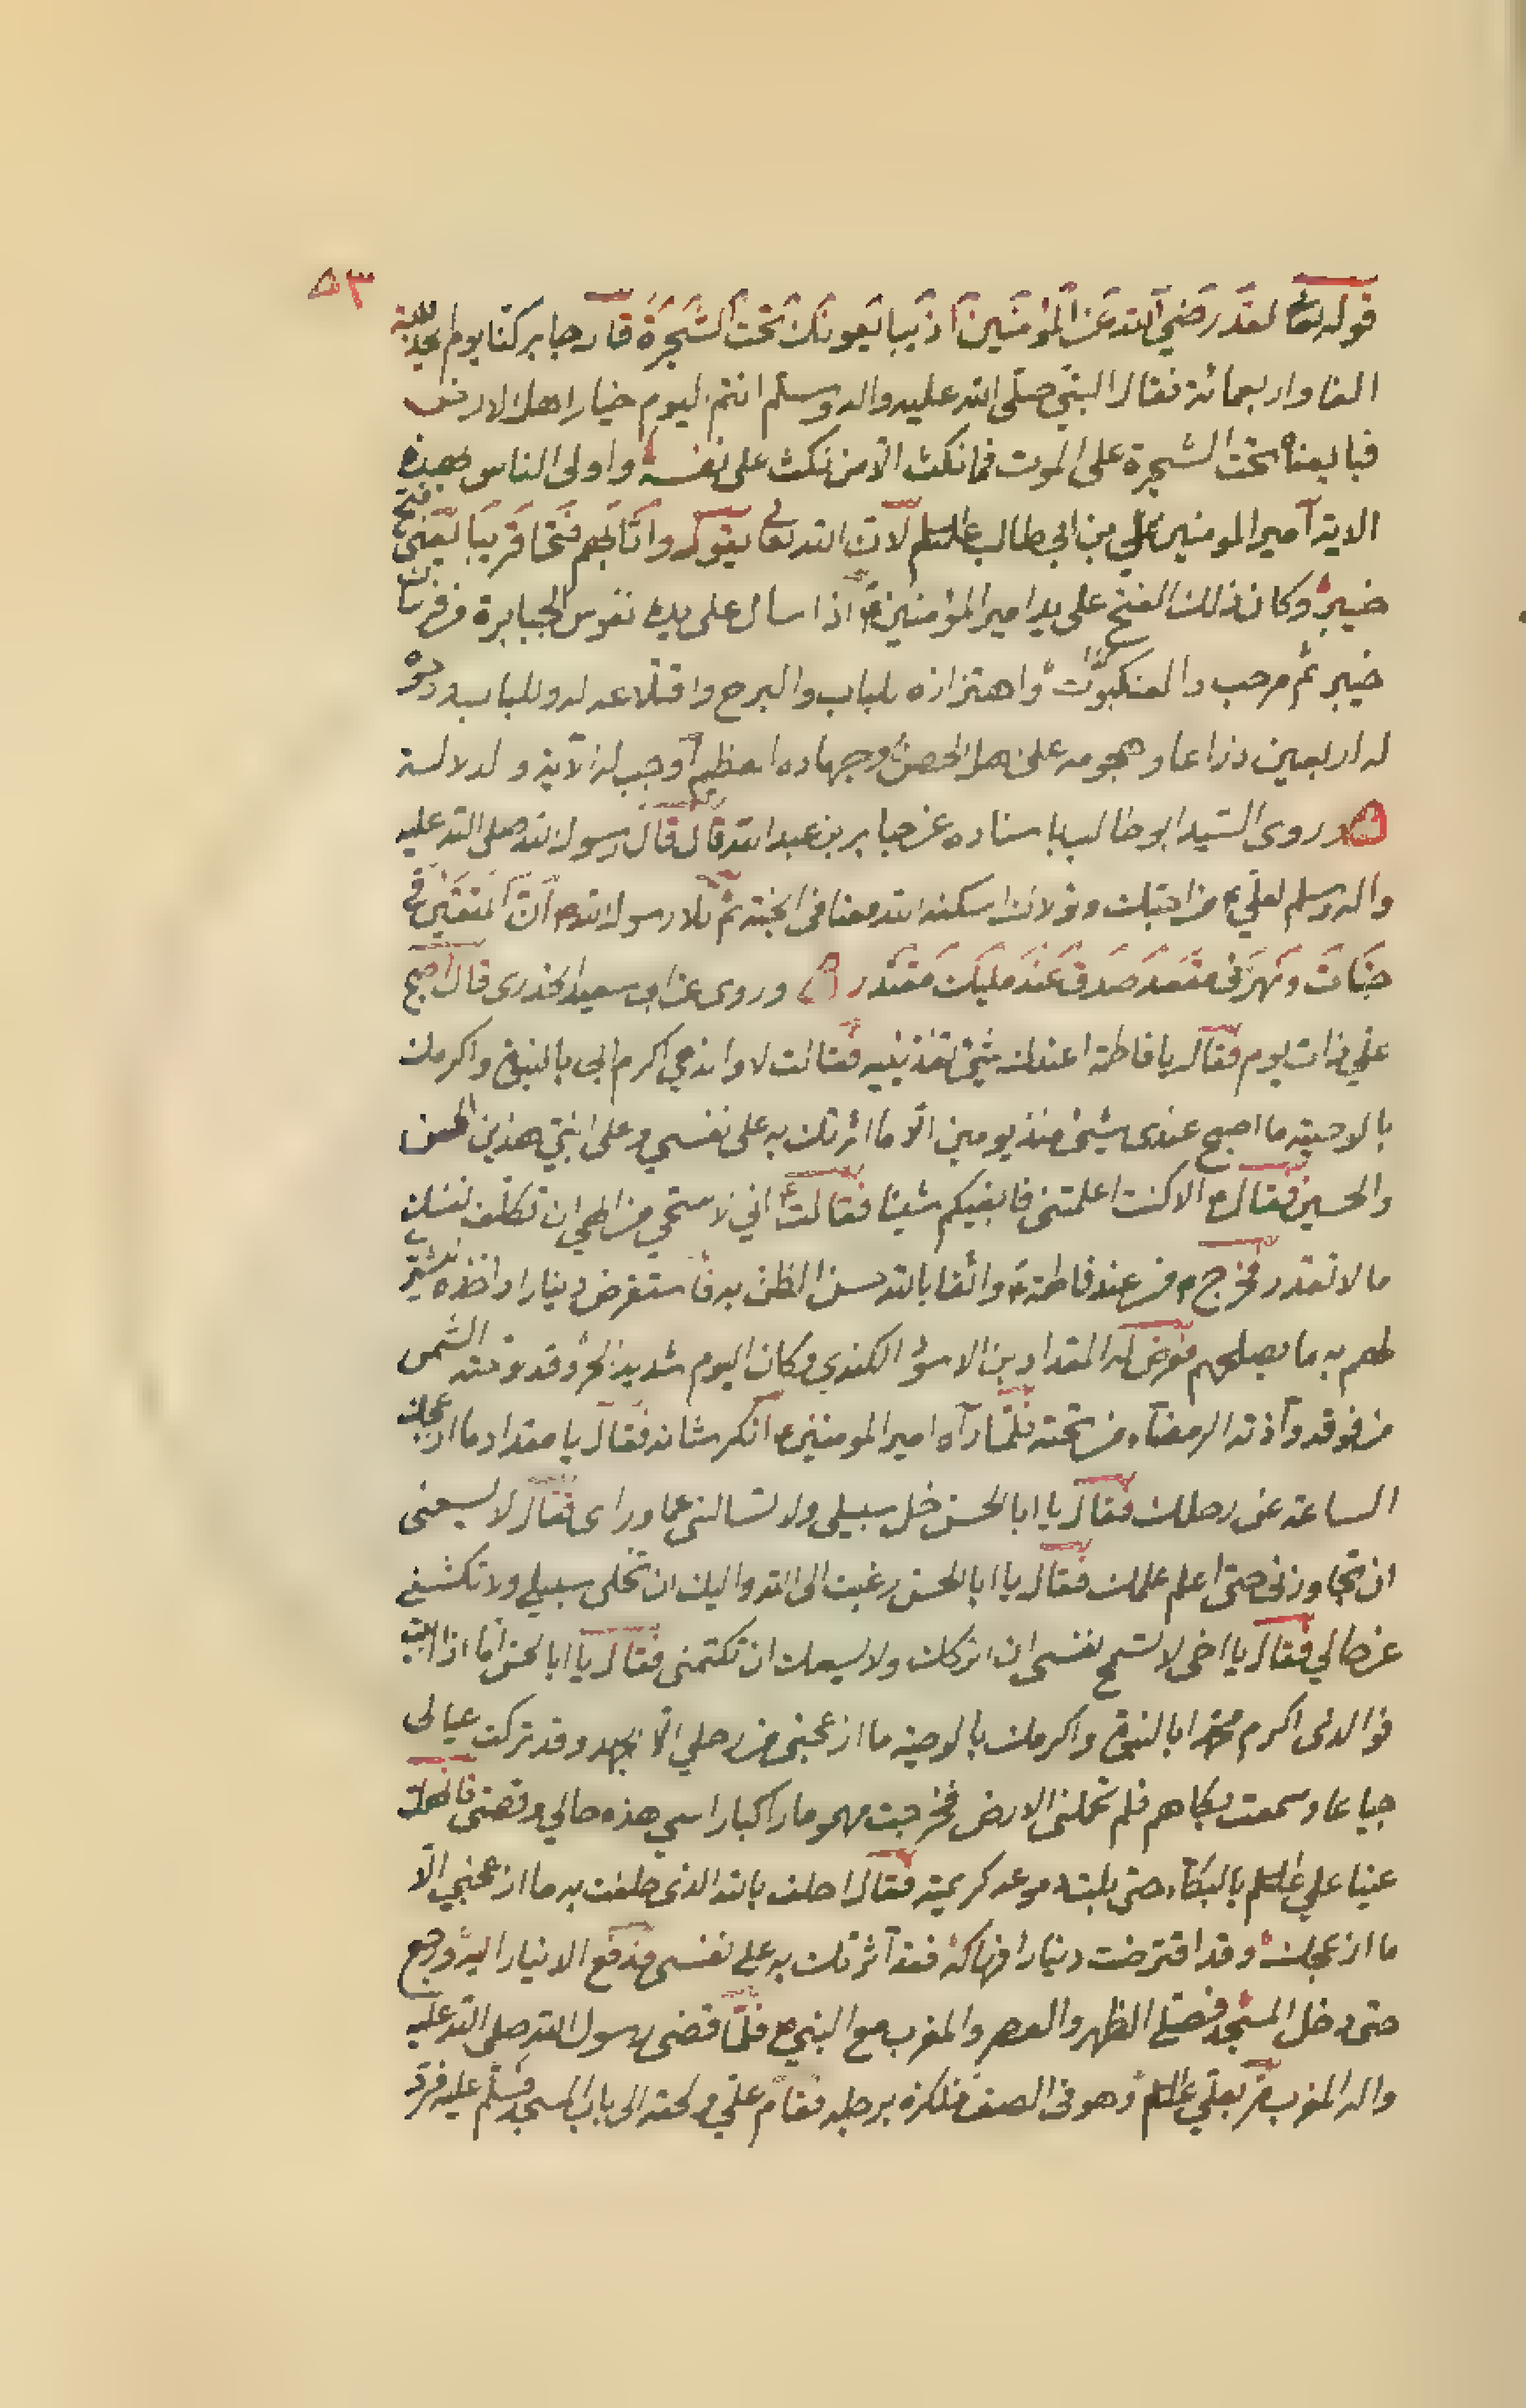 ٥٣
قوله تعا لقد رضي الله عن المؤمنين اذ يبايعونك تحت الشجرة قال جابر كنا يوم الحديبية
الفا واربعمائة فقال النبي صلى الله عليه واله وسلم انتم اليوم خيار اهل الارض
فبايعنا تحت الشجرة على الموت فما نكث الا من نكث على نفسه واولى الناس بهذه
الاية امير المومنين علي بن ابي طالب عليه السلم لان الله تعالى يقول واثابهم فتحا قريبا يعني فتح
خيبر وكان ذلك الفتح على يد امير المؤمنين ع اذا سال على يده نفوس الجبابرة من فرسان
خيبر ثم مرحب والعنكبوت واهتزازه بالباب والبرج واقتلاعه له وللباب ودحوه
له اربعين ذراعا وهجومه على اهل الحصن وجهاده العظيم اوجب له الاية والدلالة
وروى السيد ابو طالب باسناده عن جابر بن عبد الله قال قال رسول الله صلى الله عليه
واله وسلم لعلي ع من احبك وتولاك اسكنه الله معنا في الجنة ثم تلا رسول الله ص ان المتقين في
جنات ونهر في مقعد صدق عند مليك مقتدر وروى عن ابي سعيد الخدرى قال اصبح
علي ذات يوم فقال يا فاطمة اعندك شيئ تغذينيه فقالت لا والذي اكرم ابي بالنبوة واكرمك
بالوصية ما اصبح عندى شيئ منذ يومين الا ما اثرتك به على نفسي وعلى ابني هذين الحسن
والحسين فقال ع الا كنت اعلمتني فابغيكم شيئا فقالت ع اني لاستحي من الهي ان تكلف نفسك
ما لا تقدر فخرج ع من عند فاطمة ع واثقا بالله حسن الظن به فاستقرض دينارا واخذه ليشتري
لهم به ما يصلحهم فعرض له المقداد بن الاسود الكندي وكان اليوم شديد الحر وقد لوحته الشمس
من فوقه وآذته الرمضآء من تحته فلما رآه امير المومنين ع انكر شانه فقال يا مقداد ما ازعجك
الساعة عن رحلك فقال يا ابا الحسن خل سبيلي ولا تسالني عما وراى فقال لا يسعني
ان تجاوزني حتى اعلم علمك فقال يا ابا الحسن رغبت الى الله واليك ان تخلى سبيلي ولا تكشفني
عن حالي فقال يا اخى لا تسمح نفسى ان اتركك ولا يسعك ان تكتمنى فقال يا ابا الحسن اما اذا ابيت
فوالذى اكرم محمدا بالنبوة واكرمك بالوصية ما ازعجنى من رحلي الا الجهد وقد تركت عيالى
جياعا وسمعت بكاهم فلم تحملنى الارض فخرجت مهموما راكبا راسي هذه حالي وقصتى فانهملت
عينا علي عليه السلم بالبكآء حتى بلت دموعه كريمته فقال احلف بالله الذى حلفت به ما ازعجني الا
ما ازعجك وقد اقترضت دينارا فهاكه فقد آثرتك به على نفسى فدفع الدينار اليه ورجع
حتى دخل المسجد فصلى الظهر والعصر والمغرب مع النبي ص فلما قضى رسول الله صلى الله عليه
واله المغرب مر بعلي عليه السلم وهو فى الصف فلكزه برجله فقام علي ولحقه الى باب المسجد فسلم عليه فرد